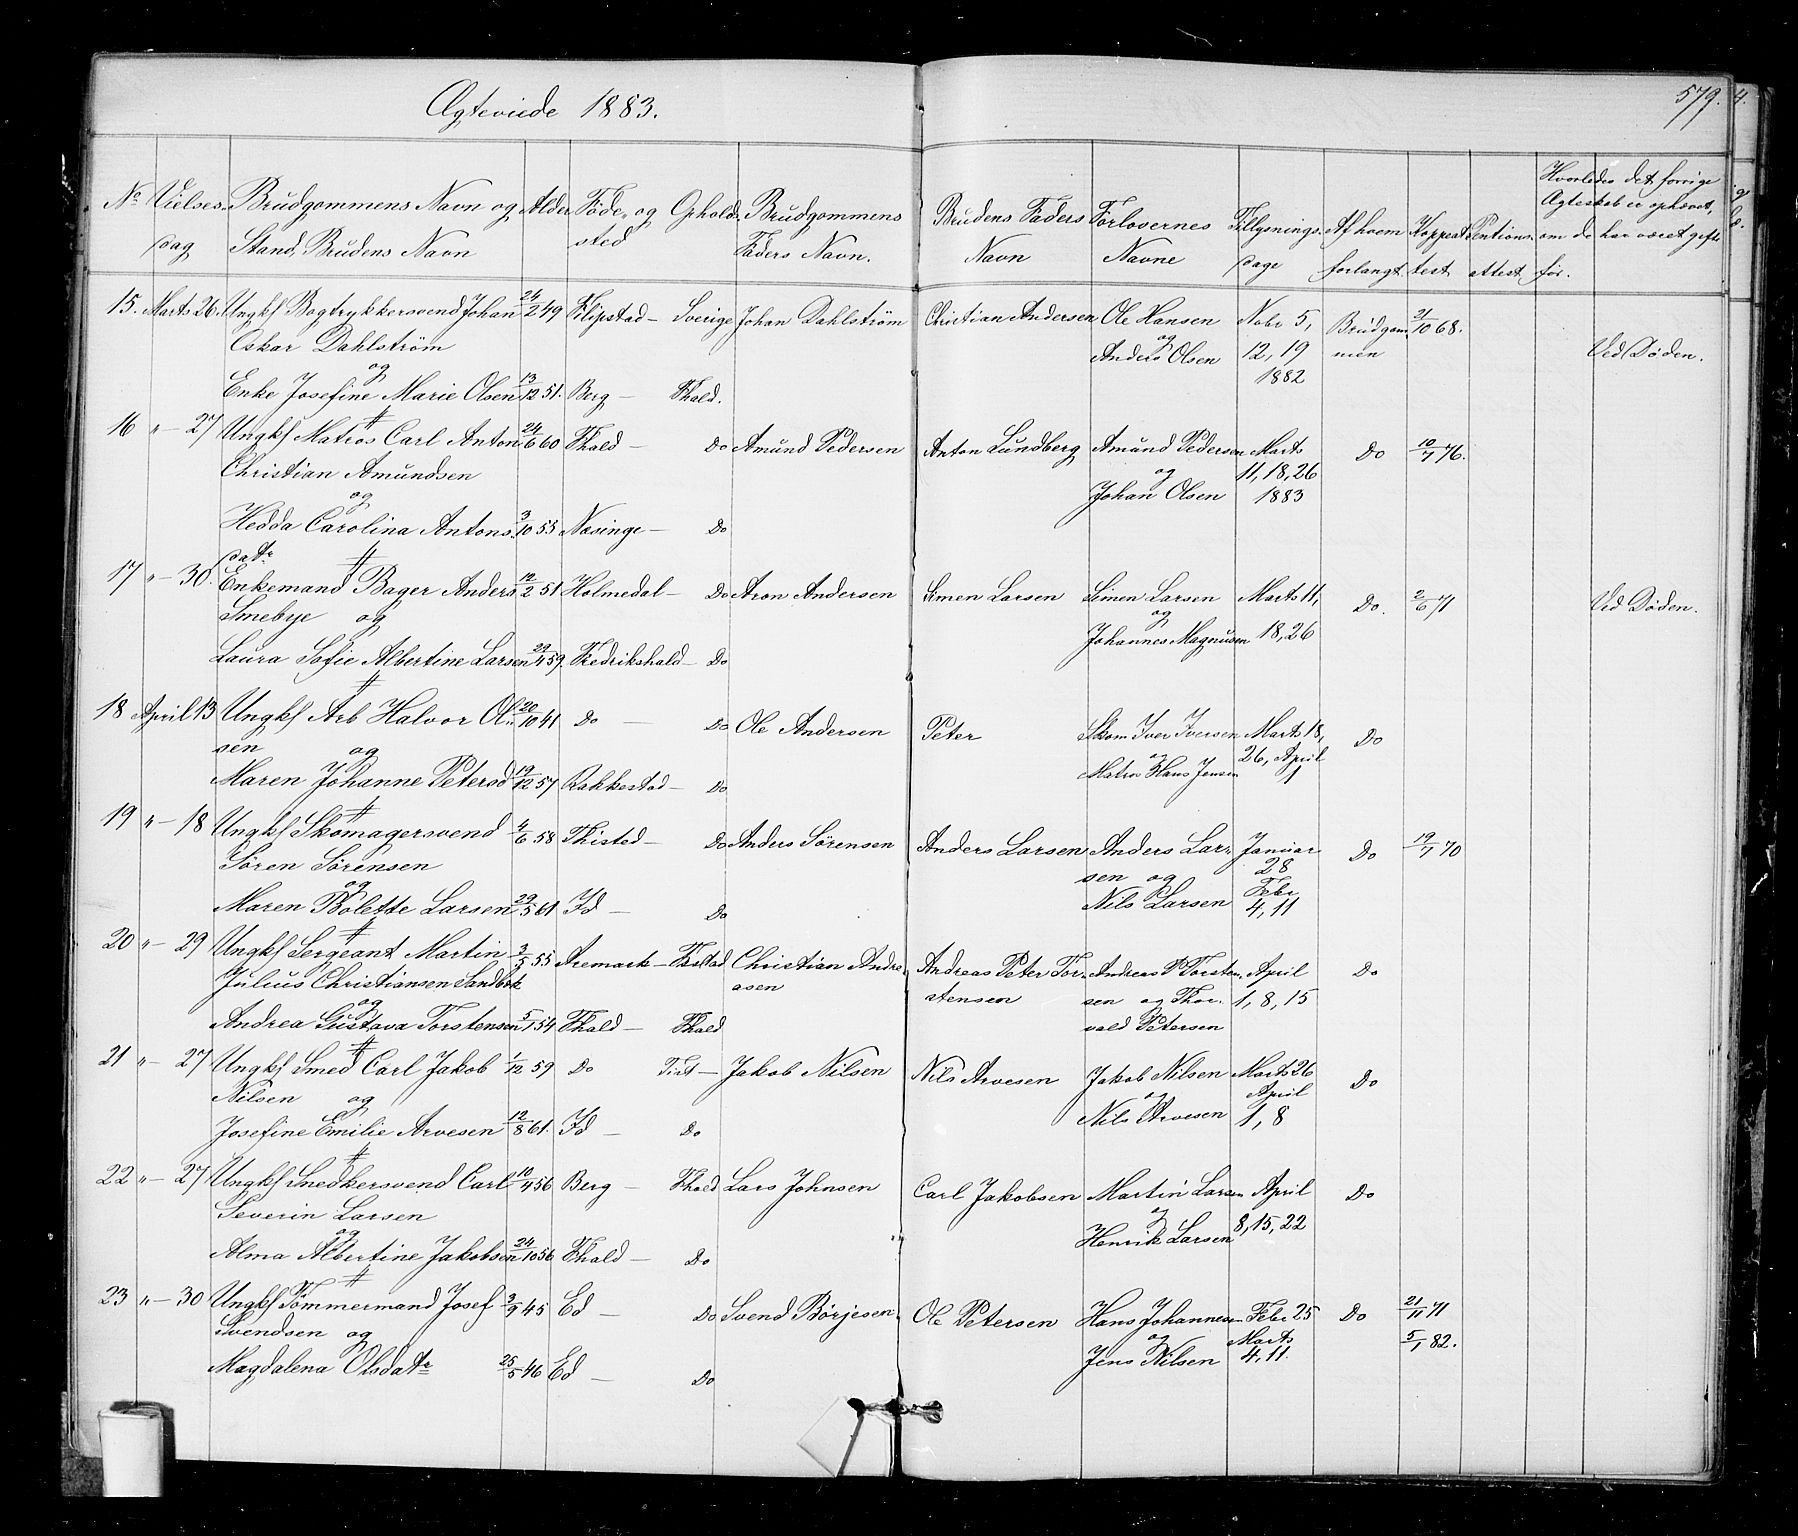 Ægteviede 1883.
579.
No Vielses dag Brudgommens Navn og Stand, Brudens Navn Alder Føde- og Opholds sted Brudgommens Faders Navn. Brudens Faders Navn Forlovernes Navne Tillysnings dage Af hvem forlangt. Koppeat test. attest. Hvorledes det forrige Ægteskab er ophævet, om de har været gifte før.
15. Marts 26. Ungkf Bogtrykkersvend Johan 24/2 49 Flipstad – Sverige Johan Dahlström Christian Andersen Ole Hansen Nobr 5, Brudgom 21/10 68.
Oskar Dahlström og Anders Olsen 12, 19 men Ved Døden.
og 1882
Enke Josefine Marie Olsen 13/12 51. Berg – Fhald.
16 " – 27 Ungkf Matros Carl Anton 24/6 60 Fhald – Do Amund Pedersen Anton Lundberg Amund Pedersen Marts Do 10/7 76.
Christian Amundsen og 11, 18, 26
og Johan Olsen 1883
Hedda Carolina Antons 3/10 55 Næsinge – Do
datr
17 " – 30. Enkemand Bager Anders 12/2 51 Holmedal – Do Aron Andersen Simen Larsen Simen Larsen Marts 11, Do. 2/6 71 Ved Døden.
Smebye og og
Johannes Magnusen 18, 26
Laura Sofie Albertine Larsen 29/4 59. Fredrikshald – Do
18 April 13 Ungkf Arb Halvor Ol- 20/10 41 Do – Do Ole Andersen Peter Skom Iver Iversen Marts 18, Do
sen og og 26, April
Maren Johanne Petersd 19/12 57 Rakkestad – Do Matro Hans Jensen 1
19 " – 18 Ungkf Skomagersvend 4/6 58 Thisted – Do Anders Sørensen Anders Larsen Anders Lar- Januar Do 19/7 70
Søren Sørensen sen og 28
og Nils Larsen Febr
Maren Bolette Larsen 29/5 61 Id – Do 4, 11
20 " – 29 Ungkf Sergeant Martin 3/5 55 Aremark – Christian Andre Andreas Peter Tor- Andreas P Torsten- April Do
Julius Christiansen asen stensen sen og Thor- 1, 8, 15
og vald Petersen
Andrea Gustava Torstensen 5/1 54 Fhald – Fhald
21 " – 27 Ungkf Smed Carl Jakob 1/12 59 Do Tist – Jakob Nilsen Nils Arvesen Jakob Nilsen Marts 26 Do
Nilsen og og April
Josefine Emilie Arvesen 12/8 61. Id – Do Nils Arvesen 1, 8
22 " – 27 Ungkf Snedkersvend Carl 10/4 56 Berg – Fhald Lars Johnsen Carl Jakobsen Martin Larsen April Do
Severin Larsen og 8, 15, 22
og Henrik Larsen
Alma Albertine Jakobsen 24/10 56 Fhald – Do
23 " – 30 Ungkf Tømmermand Josef 3/9 45 Ed – Do Svend Børjesen Ole Petersen Hans Johannesen Febr 25 Do 21/11 71
Svendsen og og Marts 5/1 82.
Magdalena Olsdatr 25/5 46 Ed – Do Jens Nilsen 4, 11.